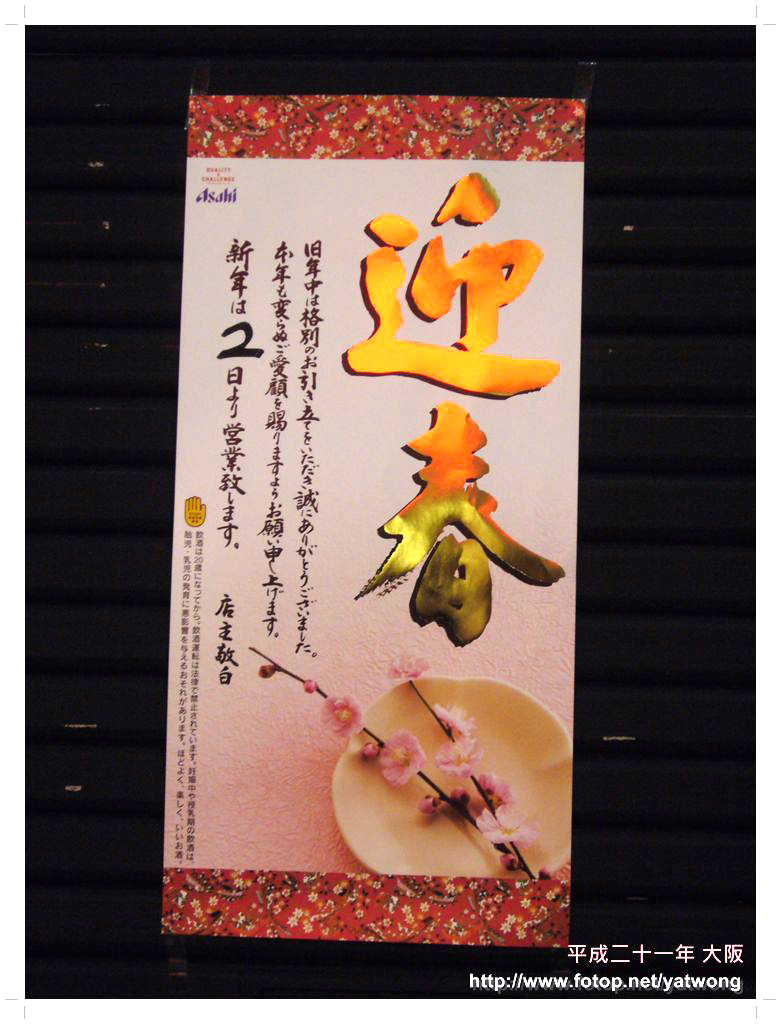 QUALITY
&
CHALLENGE
Asahi
迎春
旧年中は格別のお引き立てをいただき誠にありがとうございました。
本年も変らぬご愛顧を賜りますようお願い申し上げます。
新年は2日より営業致します。
店主敬白
飲酒は20歳になってから。飲酒運転は法律で禁止されています。妊娠中や授乳期の飲酒は、
胎児・乳児の発育に悪影響を与えるおそれがあります。ほどよく、楽しく、いいお酒。
平成二十一年 大阪
http://www.fotop.net/yatwong